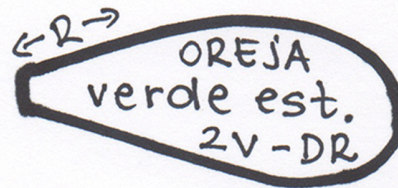 ← R →
OREJA
verde est.
2V - DR